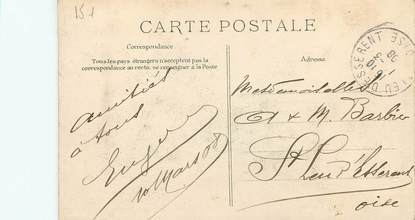 151
CARTE POSTALE
Correspondance
Tous les pays étrangers n'acceptent pas la
correspondance au recto. se renseigner à la Poste
Adresse
ST LEU D'ESSERENT OISE
amitiés
à tous
Eugène
10 Mars 08
Mesdemoiselles
A & M. Barbier
St Leu d'Esserent
oise